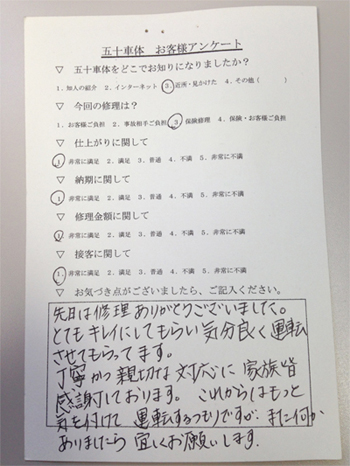 五十車体 お客様アンケート
▽ 五十車体をどこでお知りになりましたか?
1.知人の紹介 2.インターネット 3.近所・見かけた 4.その他( )
▽ 今回の修理は?
1.お客様ご負担 2.事故相手ご負担 3.保険修理 4.保険・お客様ご負担
▽ 仕上がりに関して
1.非常に満足 2.満足 3.普通 4.不満 5.非常に不満
▽ 納期に関して
1.非常に満足 2.満足 3.普通 4.不満 5.非常に不満
▽ 修理金額に関して
1.非常に満足 2.満足 3.普通 4.不満 5.非常に不満
▽ 接客に関して
1.非常に満足 2.満足 3.普通 4.不満 5.非常に不満
▽ お気づき点がございましたら、ご記入ください。
先日は修理ありがとうございました。
とてもキレイにしてもらい気分良く運転
させてもらってます。
丁寧かつ親切な対応に家族皆
感謝しております。これからはもっと
気を付けて運転するつもりですが、また何か
ありましたら宜しくお願いします。